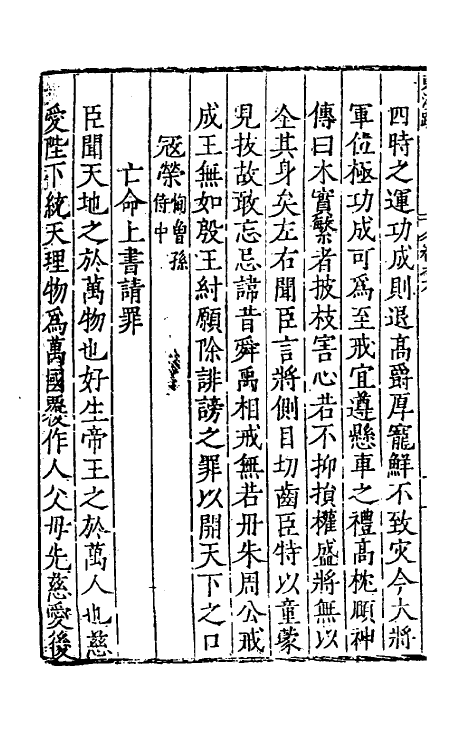 四時之運功成則退高爵厚寵鮮不致灾今大將
軍位極功成可為至戒宜遵懸車之禮高枕頤神
傳曰木實繁者披枝害心若不抑損權盛將無以
全其身矣左右聞臣言將側目切齒臣特以童蒙
見拔故敢忘忌諱昔舜禹相戒無若丹朱周公戒
成王無如殷王紂願除誹謗之罪以開天下之口
冦榮恂曾孫侍中
亡命上書請罪
臣聞天地之於萬物也好生帝王之於萬人也慈
愛陛下統天理物為萬國覆作人父毋先慈愛後